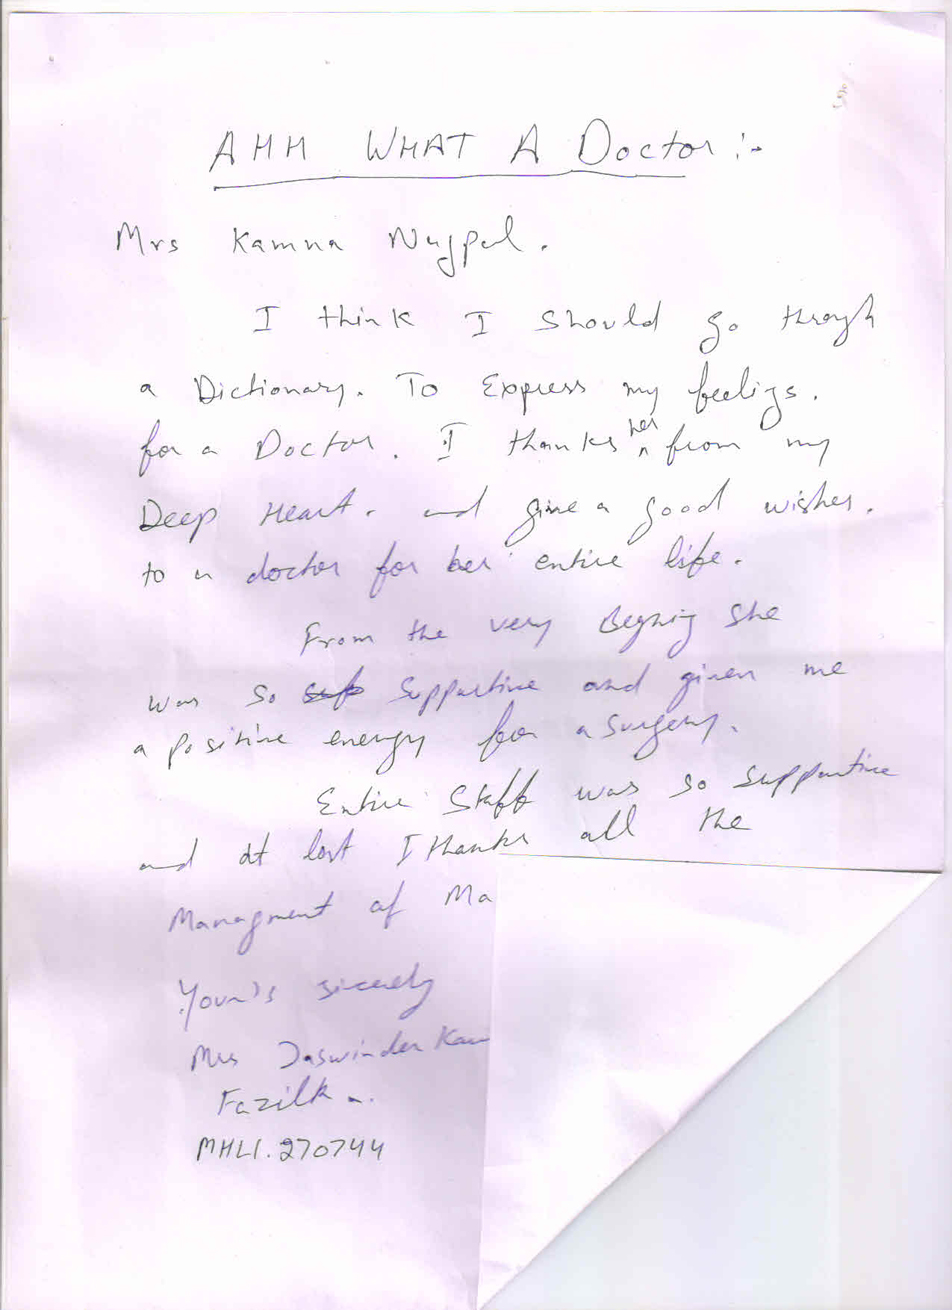 AHH WHAT A Doctor :-
Mrs Kamna Nagpal.
I think I should go throgh
a Dictionary. To Express my feeligs.
for a Doctor. I thanks her from my
Deep Heart. and give a good wishes.
to a doctor for her entire life.
From the very Begnig she
was so supportive and given me
a positive energy for a surgery.
Entire Staff was so supportive
and at last I thanks all the
Managment of Ma
Your's sicerely
Mrs Jaswinder Kau
Fazilka.
MHLI.270744